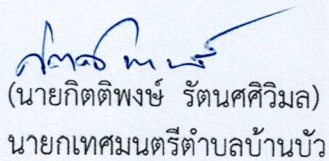 (นายกิตติพงษ์ รัตนศศิวิมล)
นายกเทศมนตรีตำบลบ้านบัว